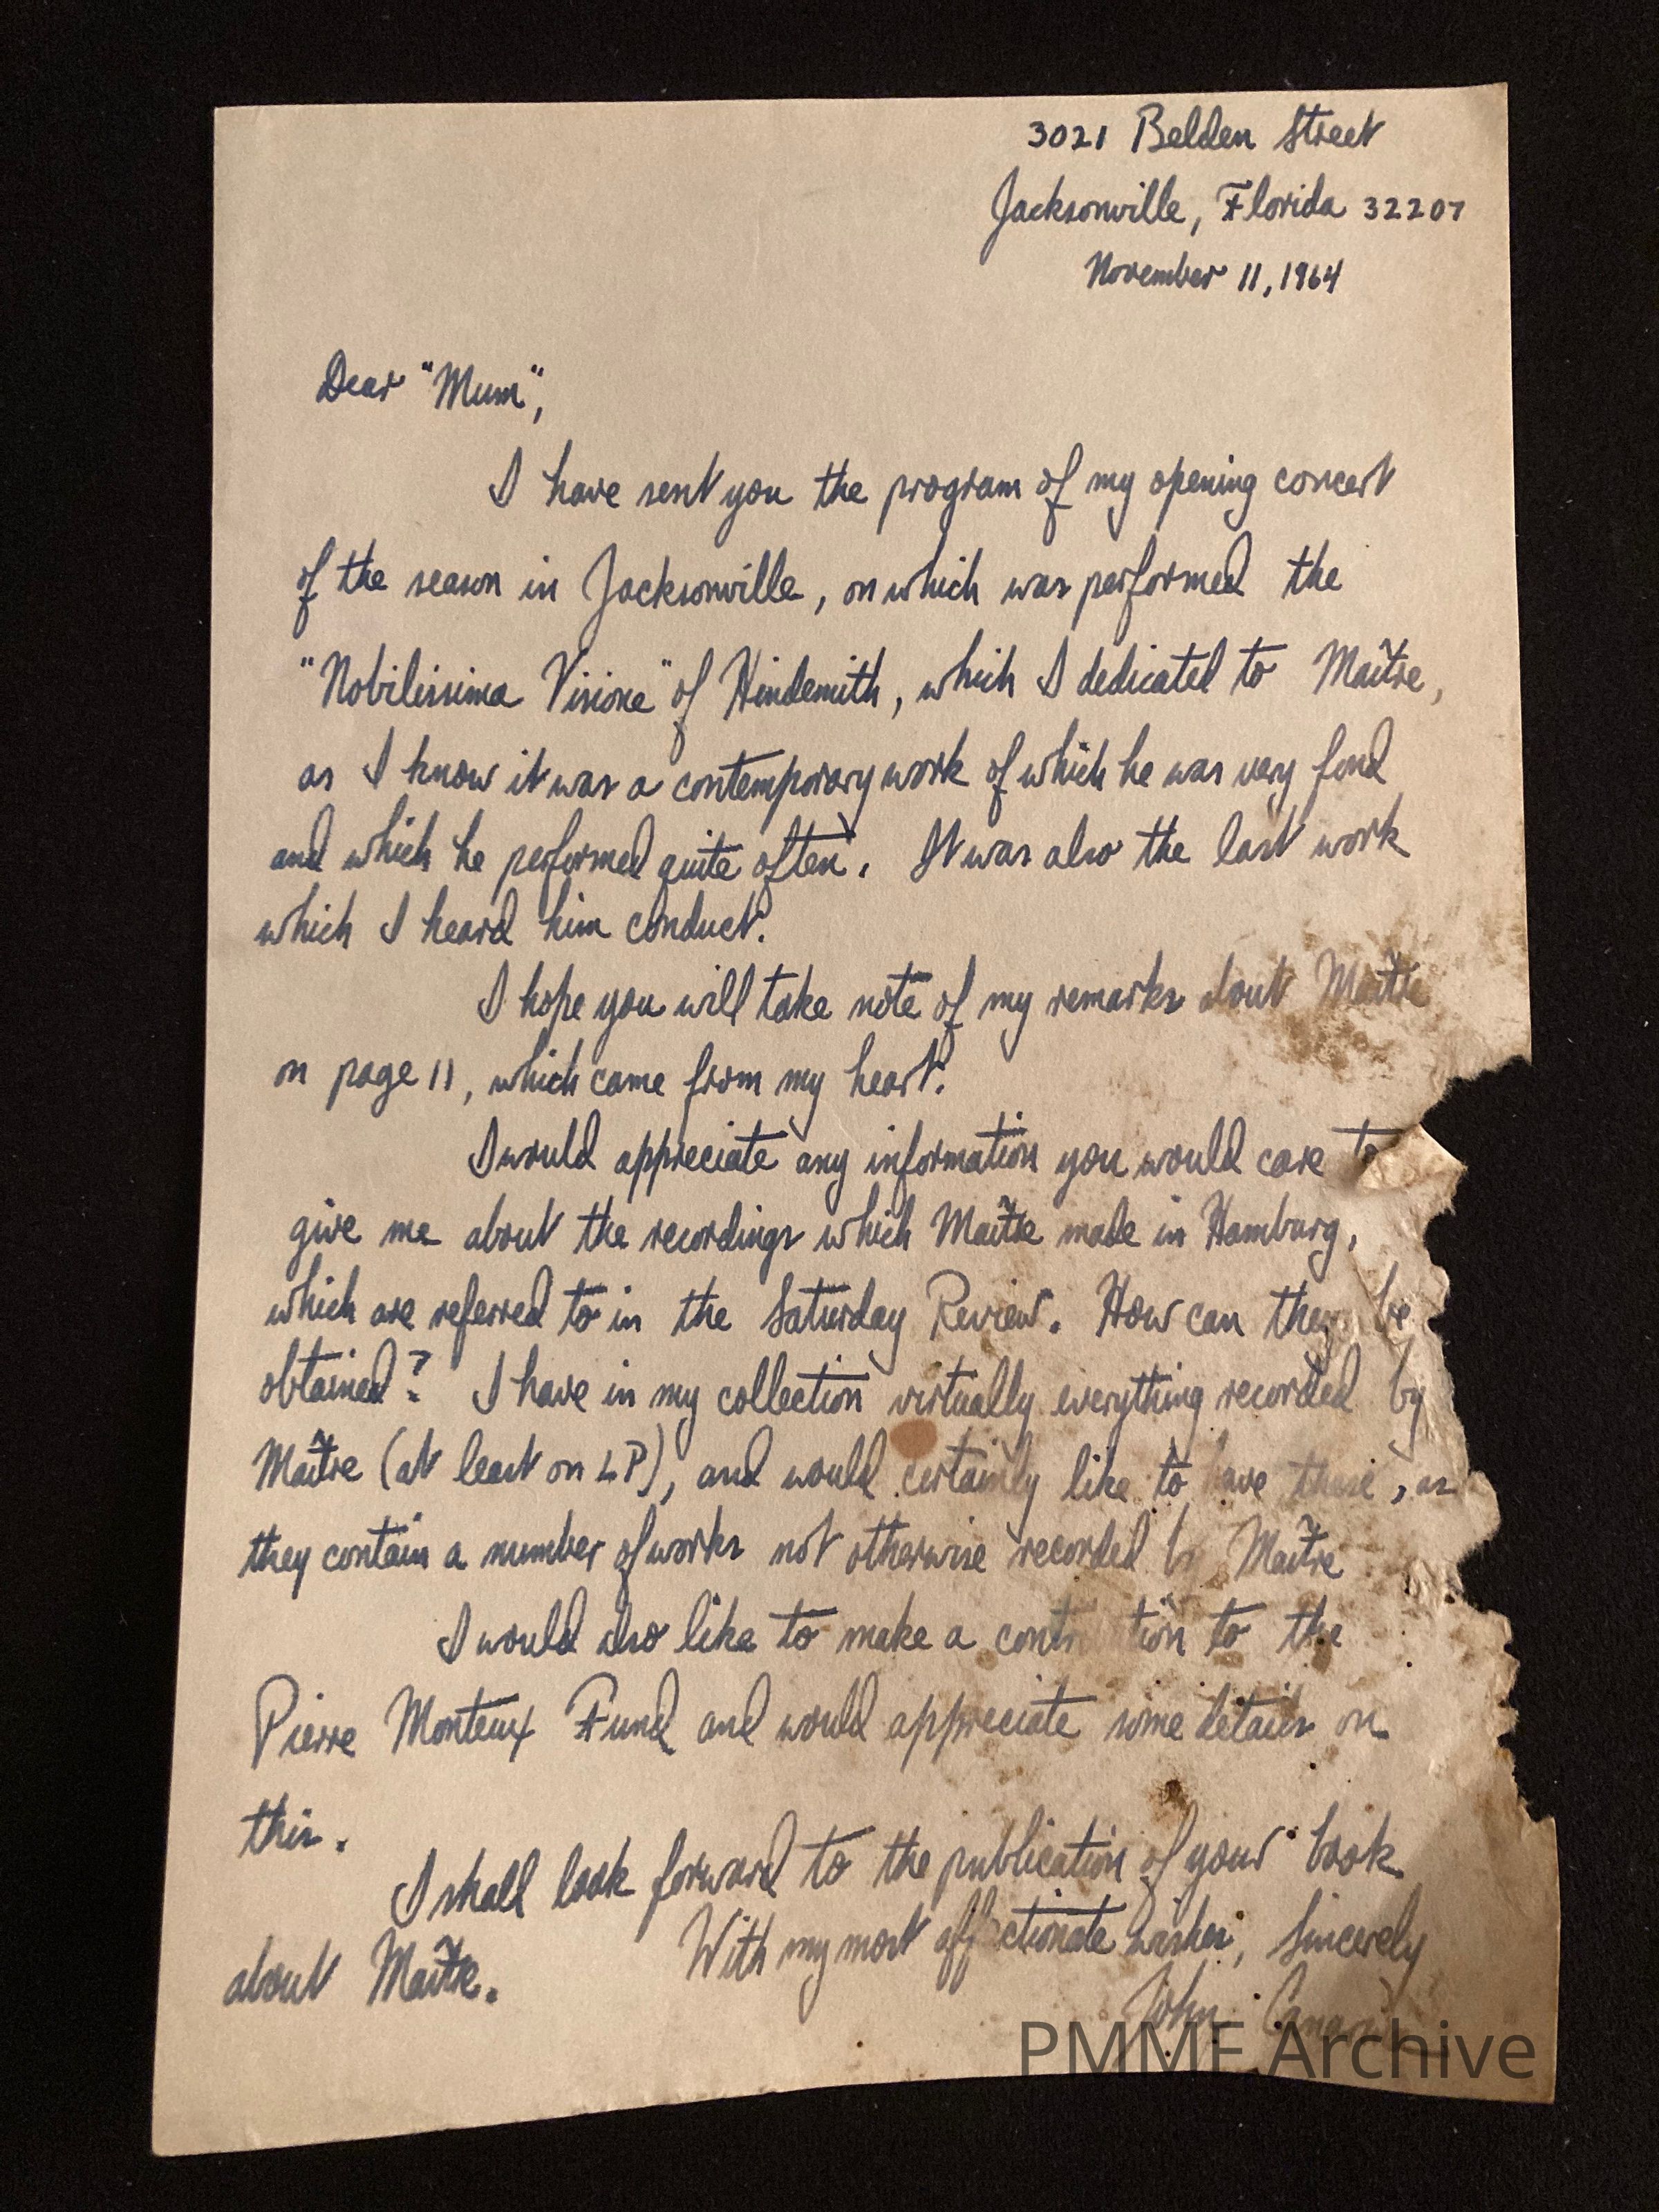 3021 Belden Street
Jacksonville, Florida 32207
November 11, 1964
Dear "Mum",
I have sent you the program of my opening concert
of the season in Jacksonville, on which was performed the
"Nobilissima Visione" of Hindemith, which I dedicated to Maître,
as I know it was a contemporary work of which he was very fond
and which he performed quite often. It was also the last work
which I heard him conduct.
I hope you will take note of my remarks about Maître
on page 11, which came from my heart.
I would appreciate any information you would care to
give me about the recordings which Maître made in Hamburg,
which are referred to in the Saturday Review. How can they be
obtained? I have in my collection virtually everything recorded by
Maître (at least on LP), and would certainly like to have these, as
they contain a number of works not otherwise recorded by Maître
I would also like to make a contribution to the
Pierre Monteux Fund and would appreciate some details on
this.
I shall look forward to the publication of your book
about Maître.
With my most affectionate wishes, Sincerely
John Canarina
PMMF Archive